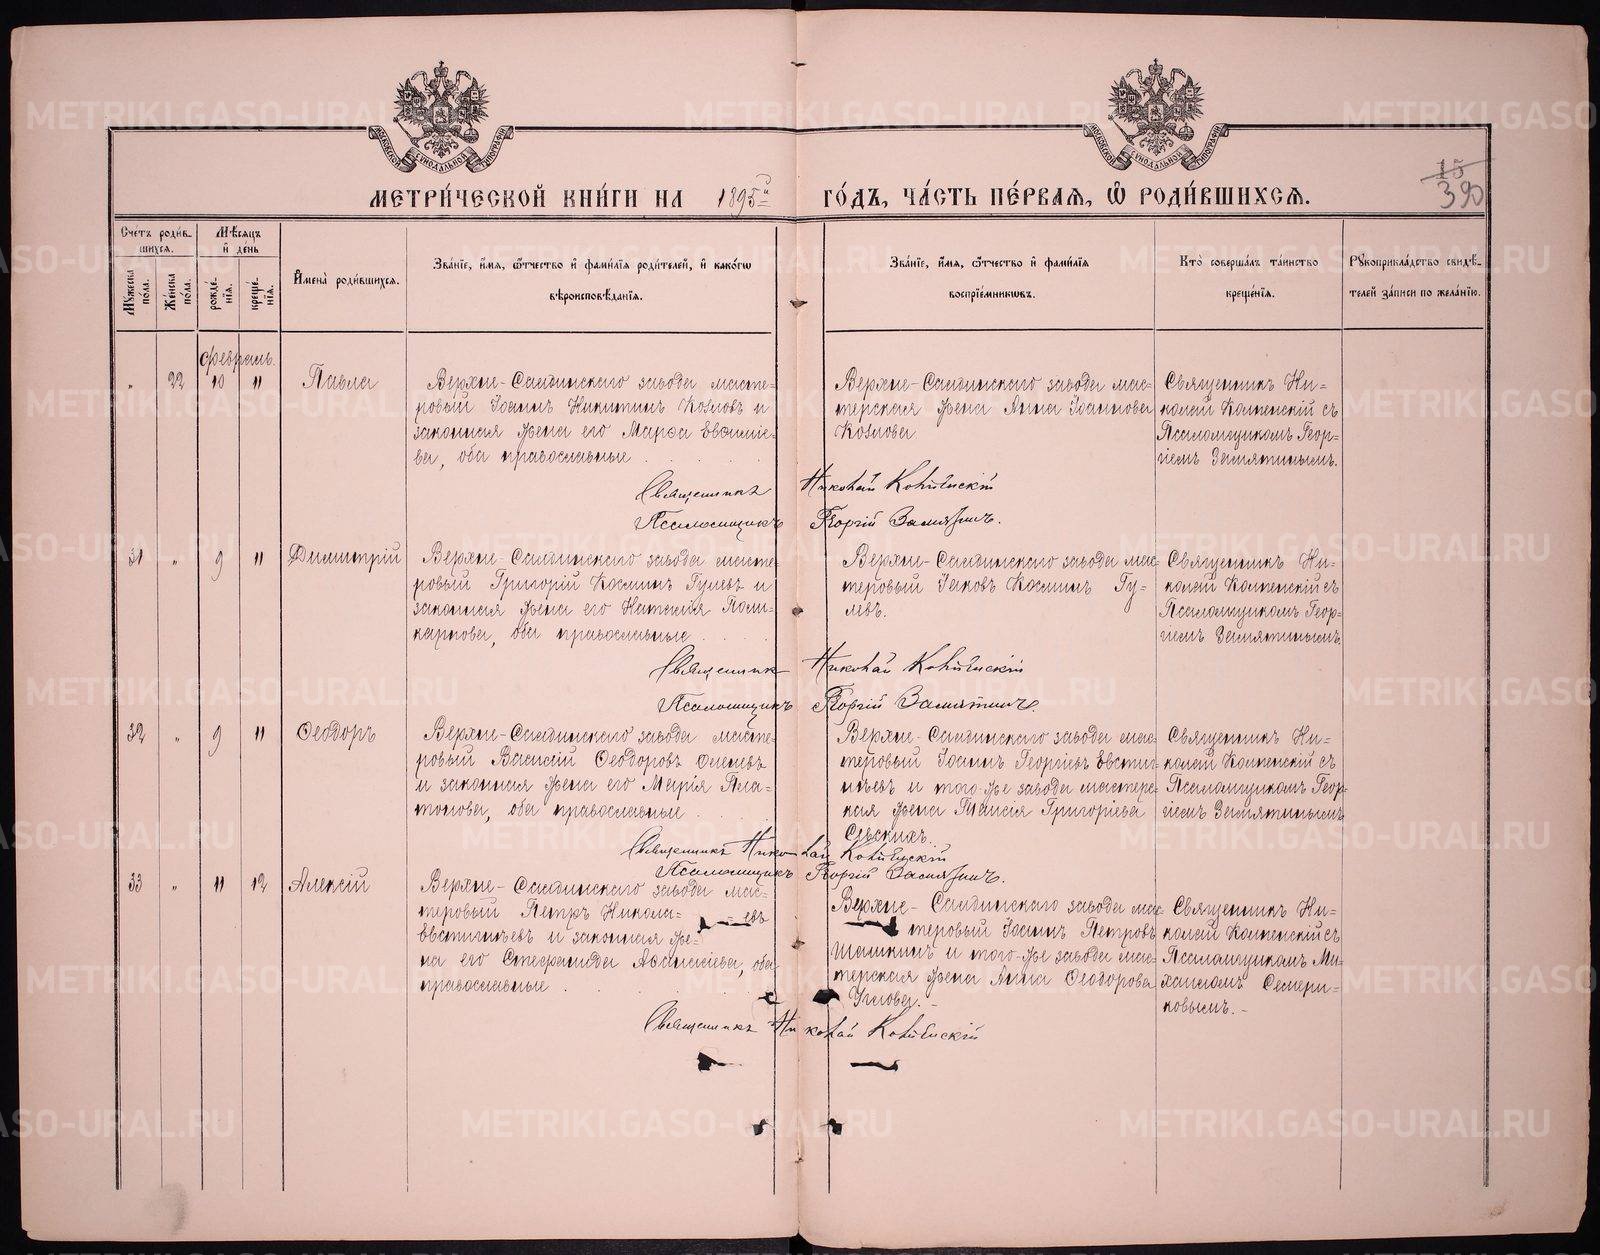 МОСКОВСКОЙ СѴНОДАЛЬНОЙ ТИПОГРАФІИ
МОСКОВСКОЙ СѴНОДАЛЬНОЙ ТИПОГРАФІИ
15
390
МЕТРИ́ЧЕСКОЙ КНИ́ГИ НА 1895й ГО́ДЪ, ЧА́СТЬ ПЕ́РВАѦ, Ѡ РОДИ́ВШИХСѦ.
Сче́тъ роди́в-
шихсѧ.
Мѣсѧцъ
и҆ де́нь
Мꙋ́жеска по́ла.
Же́нска по́ла.
рожде́-нїѧ.
креще́-нїѧ.
И҆мена̀ роди́вшихсѧ.
Зва́нїе, и҆́мѧ, ѻ҆́тчество и҆ фами́лїѧ роди́телей, и҆ како́гѡ
вѣроисповѣ́данїѧ.
Зва́нїе, и҆́мѧ, ѻ҆́тчество и҆ фами́лїѧ
воспрїе́мникѡвъ.
Кто̀ соверша́лъ та́инство
креще́нїѧ.
Рꙋкоприкла́дство свидѣ́-
телей за́писи по жела́нїю.
Февраль.
„ 22 10 11 Павла
Верхне-Салдинскаго завода масте-
ровый Іоаннъ Никитинъ Козловъ и
законная жена его Марѳа Евѳиміе-
ва, оба православные
Верхне-Салдинскаго завода мас-
терская жена Анна Іоаннова
Козлова
Священникъ Ни-
колай Копенскій съ
Псаломщикомъ Геор-
гіемъ Замятинымъ.
Священникъ Николай
Псаломщикъ Георгій Замятинъ.
31 „ 9 11 Димитрій
Верхне-Салдинскаго завода масте-
ровый Григорій Косминъ Гулевъ и
законная жена его Наталія Поли-
карпова, оба православные
Верхне-Салдинскаго завода мас-
теровый Іаковъ Косминъ Гу-
левъ.
Священникъ Ни-
колай Копенскій съ
Псаломщикомъ Геор-
гіемъ Замятинымъ
Священникъ Николай
Псаломщикъ Георгій Замятинъ.
32 „ 9 11 Ѳеодоръ
Верхне-Салдинскаго завода масте-
ровый Василій Ѳеодоровъ
и законная жена его Марія Пла-
тонова, оба православные
Верхне-Салдинскаго завода мас-
теровый Іоаннъ Георгіевъ Евстиг-
нѣевъ и того-же завода мастерс-
кая жена Таисія Григоріева
Священникъ Ни-
колай Копенскій съ
Псаломщикомъ Геор-
гіемъ Замятинымъ
Священникъ Николай
Псаломщикъ Георгій Замятинъ.
33 „ 11 12 Алексій
Верхне-Салдинскаго завода мас-
теровый Петръ Никола-евъ
Евстигнѣевъ и законная же-
на его Стефанида Аѳанасіева, оба
православные
Верхне-Салдинскаго завода мас-
теровый Іоаннъ Петровъ
Шашкинъ и того-же завода мас-
терская жена Анна Ѳеодорова
Углова.
Священникъ Ни-
колай Копенскій съ
Псаломщикомъ Ми-
хаиломъ Семери-
ковымъ.
Священникъ Николай
METRIKI.GASO-URAL.RU